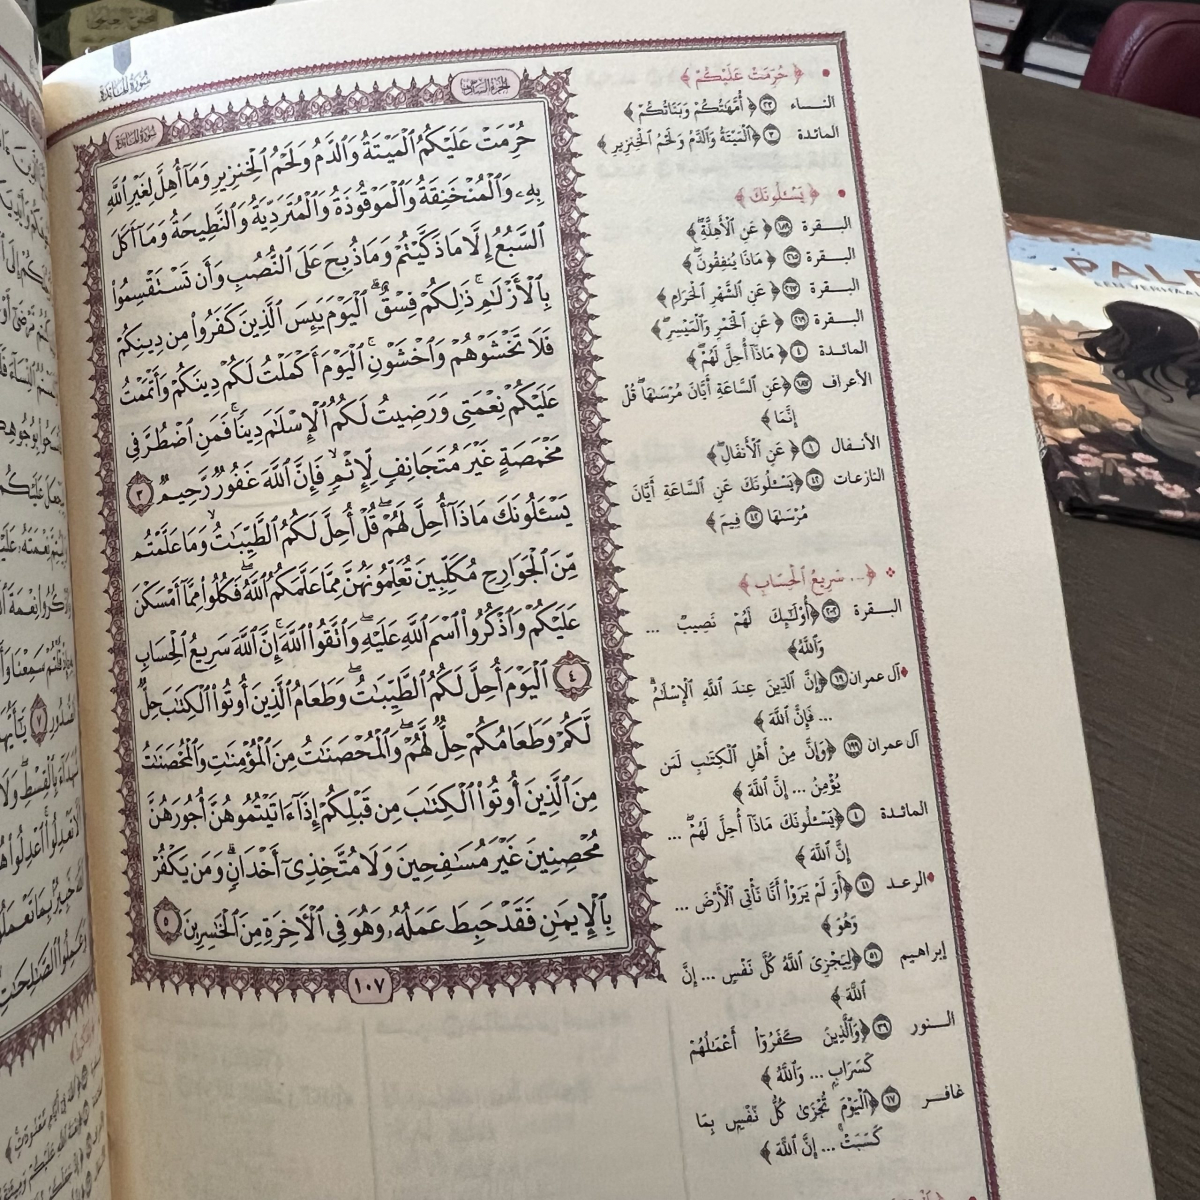 سُورَةُ المَائِدَة
الجزء السادس
سُورَةُ المَائِدَة
حُرِّمَتْ عَلَيْكُمُ ٱلْمَيْتَةُ وَٱلدَّمُ وَلَحْمُ ٱلْخِنزِيرِ وَمَآ أُهِلَّ لِغَيْرِ ٱللَّهِ
بِهِۦ وَٱلْمُنْخَنِقَةُ وَٱلْمَوْقُوذَةُ وَٱلْمُتَرَدِّيَةُ وَٱلنَّطِيحَةُ وَمَآ أَكَلَ
ٱلسَّبُعُ إِلَّا مَا ذَكَّيْتُمْ وَمَا ذُبِحَ عَلَى ٱلنُّصُبِ وَأَن تَسْتَقْسِمُوا۟
بِٱلْأَزْلَـٰمِ ۚ ذَٰلِكُمْ فِسْقٌ ۗ ٱلْيَوْمَ يَئِسَ ٱلَّذِينَ كَفَرُوا۟ مِن دِينِكُمْ
فَلَا تَخْشَوْهُمْ وَٱخْشَوْنِ ۚ ٱلْيَوْمَ أَكْمَلْتُ لَكُمْ دِينَكُمْ وَأَتْمَمْتُ
عَلَيْكُمْ نِعْمَتِى وَرَضِيتُ لَكُمُ ٱلْإِسْلَـٰمَ دِينًا ۚ فَمَنِ ٱضْطُرَّ فِى
مَخْمَصَةٍ غَيْرَ مُتَجَانِفٍ لِّإِثْمٍ ۙ فَإِنَّ ٱللَّهَ غَفُورٌ رَّحِيمٌ ٣
يَسْـَٔلُونَكَ مَاذَآ أُحِلَّ لَهُمْ ۖ قُلْ أُحِلَّ لَكُمُ ٱلطَّيِّبَـٰتُ ۙ وَمَا عَلَّمْتُم
مِّنَ ٱلْجَوَارِحِ مُكَلِّبِينَ تُعَلِّمُونَهُنَّ مِمَّا عَلَّمَكُمُ ٱللَّهُ ۖ فَكُلُوا۟ مِمَّآ أَمْسَكْنَ
عَلَيْكُمْ وَٱذْكُرُوا۟ ٱسْمَ ٱللَّهِ عَلَيْهِ ۖ وَٱتَّقُوا۟ ٱللَّهَ ۚ إِنَّ ٱللَّهَ سَرِيعُ ٱلْحِسَابِ
٤ ٱلْيَوْمَ أُحِلَّ لَكُمُ ٱلطَّيِّبَـٰتُ ۖ وَطَعَامُ ٱلَّذِينَ أُوتُوا۟ ٱلْكِتَـٰبَ حِلٌّ
لَّكُمْ وَطَعَامُكُمْ حِلٌّ لَّهُمْ ۖ وَٱلْمُحْصَنَـٰتُ مِنَ ٱلْمُؤْمِنَـٰتِ وَٱلْمُحْصَنَـٰتُ
مِنَ ٱلَّذِينَ أُوتُوا۟ ٱلْكِتَـٰبَ مِن قَبْلِكُمْ إِذَآ ءَاتَيْتُمُوهُنَّ أُجُورَهُنَّ
مُحْصِنِينَ غَيْرَ مُسَـٰفِحِينَ وَلَا مُتَّخِذِىٓ أَخْدَانٍ ۗ وَمَن يَكْفُرْ
بِٱلْإِيمَـٰنِ فَقَدْ حَبِطَ عَمَلُهُۥ وَهُوَ فِى ٱلْـَٔاخِرَةِ مِنَ ٱلْخَـٰسِرِينَ ٥
١٠٧
• ﴿ حُرِّمَتْ عَلَيْكُمْ ﴾
النساء ٢٣ ﴿ أُمَّهَـٰتُكُمْ وَبَنَاتُكُمْ ﴾
المائدة ٣ ﴿ٱلْمَيْتَةُ وَٱلدَّمُ وَلَحْمُ ٱلْخِنزِيرِ ﴾
• ﴿ يَسْـَٔلُونَكَ ﴾
البقرة ١٨٩ ﴿ عَنِ ٱلْأَهِلَّةِ ۖ ﴾
البقرة ٢١٥ ﴿ مَاذَا يُنفِقُونَ ۖ ﴾
البقرة ٢١٧ ﴿ عَنِ ٱلشَّهْرِ ٱلْحَرَامِ ﴾
البقرة ٢١٩ ﴿ عَنِ ٱلْخَمْرِ وَٱلْمَيْسِرِ ۖ ﴾
المائدة ٤ ﴿ مَاذَآ أُحِلَّ لَهُمْ ۖ ﴾
الأعراف ١٨٧ ﴿عَنِ ٱلسَّاعَةِ أَيَّانَ مُرْسَىٰهَا ۖ قُلْ
إِنَّمَا ﴾
الأنفال ١ ﴿ عَنِ ٱلْأَنفَالِ ۖ ﴾
النازعات ٤٢ ﴿يَسْـَٔلُونَكَ عَنِ ٱلسَّاعَةِ أَيَّانَ
مُرْسَىٰهَا ٤٢ فِيمَ ﴾
﴿ ... سَرِيعُ ٱلْحِسَابِ ﴾
البقرة ٢٠٢ ﴿أُو۟لَـٰٓئِكَ لَهُمْ نَصِيبٌ ...
وَٱللَّهُ﴾
آل عمران ١٩ ﴿إِنَّ ٱلدِّينَ عِندَ ٱللَّهِ ٱلْإِسْلَـٰمُ ۗ
... فَإِنَّ ٱللَّهَ ﴾
آل عمران ١٩٩ ﴿وَإِنَّ مِنْ أَهْلِ ٱلْكِتَـٰبِ لَمَن
يُؤْمِنُ ... إِنَّ ٱللَّهَ ﴾
المائدة ٤ ﴿يَسْـَٔلُونَكَ مَاذَآ أُحِلَّ لَهُمْ ۖ ...
إِنَّ ٱللَّهَ ﴾
الرعد ٤١ ﴿أَوَلَمْ يَرَوْا۟ أَنَّا نَأْتِى ٱلْأَرْضَ ...
وَهُوَ ﴾
إبراهيم ٥١ ﴿لِيَجْزِىَ ٱللَّهُ كُلَّ نَفْسٍ ... إِنَّ
ٱللَّهَ ﴾
النور ٣٩ ﴿وَٱلَّذِينَ كَفَرُوٓا۟ أَعْمَـٰلُهُمْ
كَسَرَابٍ ... وَٱللَّهُ ﴾
غافر ١٧ ﴿ٱلْيَوْمَ تُجْزَىٰ كُلُّ نَفْسٍ بِمَا
كَسَبَتْ ۚ ... إِنَّ ٱللَّهَ ﴾
EEN VERHAA